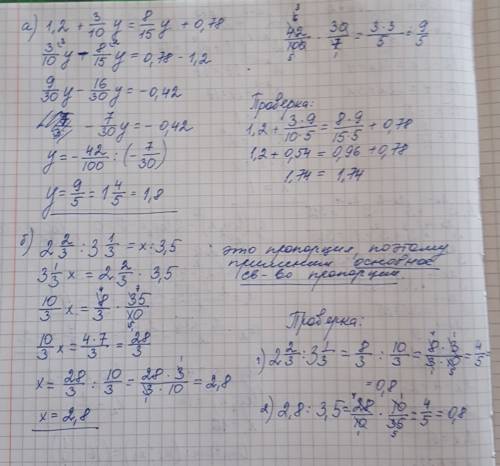 а) 1,2 + 3/10 y = 8/15 y + 0,78
3/10 y - 8/15 y = 0,78 - 1,2
9/30 y - 16/30 y = -0,42
- 7/30 y = -0,42
y = - 42/100 : (- 7/30)
y = 9/5 = 1 4/5 = 1,8
42/100 · 30/7 = 3·3/5 = 9/5
Проверка:
1,2 + 3·9/10·5 = 8·9/15·5 + 0,78
1,2 + 0,54 = 0,96 + 0,78
1,74 = 1,74
б) 2 2/3 : 3 1/3 = x : 3,5
3 1/3 x = 2 2/3 · 3,5
10/3 x = 8/3 · 35/10
10/3 x = 4·7/3 = 28/3
x = 28/3 : 10/3 = 28·3/3·10 = 2,8
x = 2,8
это пропорция, поэтому
применим основное
св-во пропорции
Проверка:
1) 2 2/3 : 3 1/3 = 8/3 : 10/3 = 8·3/3·10 = 4/5 =
= 0,8
2) 2,8 : 3,5 = 28/10 · 10/35 = 4/5 = 0,8